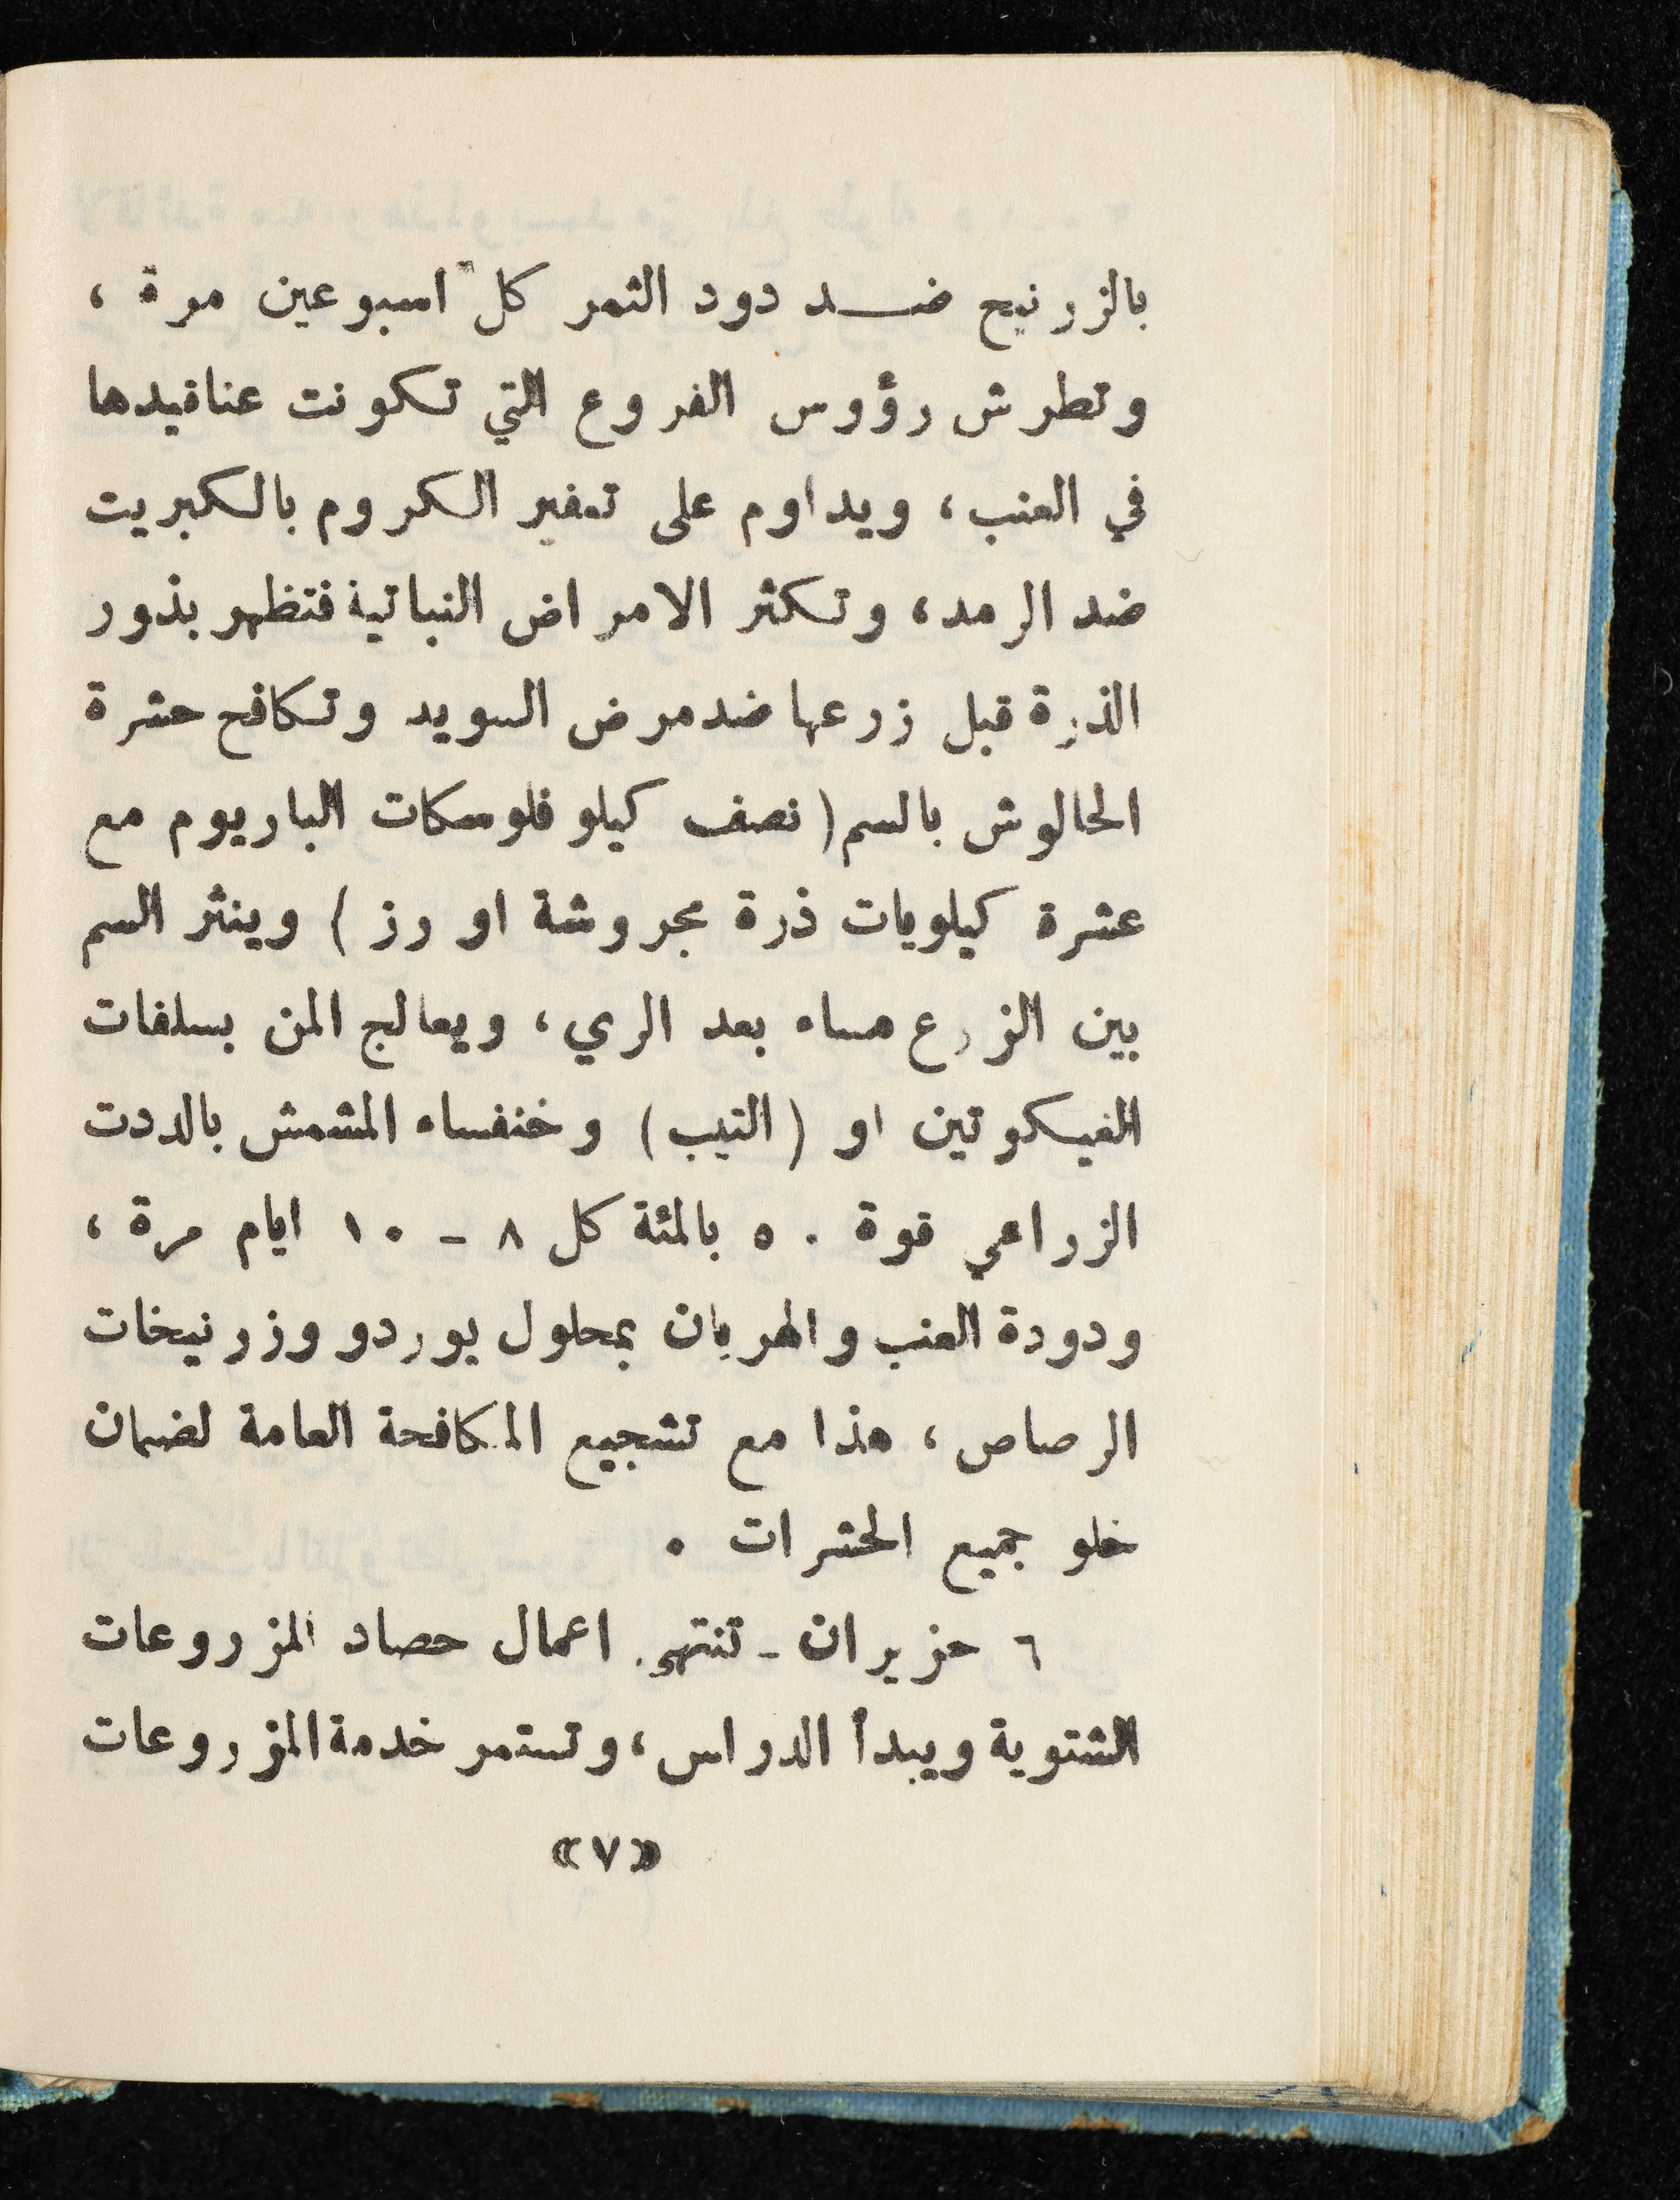 بالزرنيح ضد دود الثمر كل اسبوعين مرة ،
وتطرش رؤوس الفروع التي تكونت عناقيدها
في العنب ، ويداوم على تعفير الكروم بالكبريت
ضد الرمد ، وتكثر الامراض النباتية فتظهر بذور
الذرة قبل زرعها ضد مرض السويد وتكافح حشرة
الحالوش بالسم ( نصف كيلو فلوسكات الباريوم مع
عشرة كيلويات ذرة مجروشة او رز ) وينثر السم
بين الزرع مساء بعد الري ، ويعالج المن بسلفات
الفيكوتين او ( التيب ) وخنفساء المشمش بالددت
الزراعي قوة ٥٠ بالمئة كل ٨ - ١٠ ايام مرة ،
ودودة العنب والهربان بمحلول بوردو وزرنيخات
الرصاص ، هذا مع تشجيع المكافحة العامة لضمان
خلو جميع الحشرات .
٦ حزيران - تنتهي اعمال حصاد المزروعات
الشتوية ويبدأ الدراس ، وتستمر خدمة المزروعات
«٧»